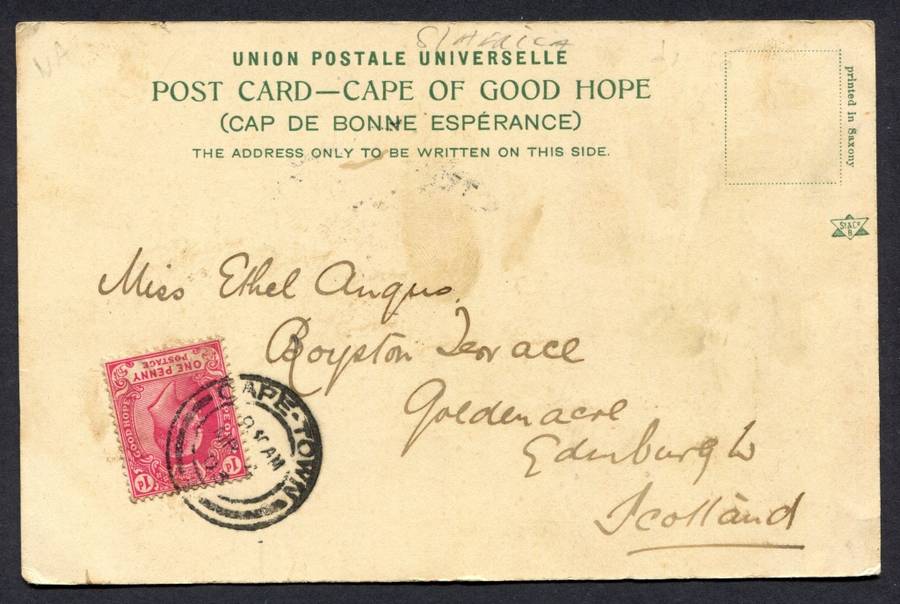 S/AFRICA
UNION POSTALE UNIVERSELLE
POST CARD—CAPE OF GOOD HOPE
(CAP DE BONNE ESPÉRANCE)
THE ADDRESS ONLY TO BE WRITTEN ON THIS SIDE.
printed in Saxony
St&Co
B
Miss Ethel Angus.
Royston Terrace
Goldenacre
Edinburgh
Scotland
ONE PENNY
POSTAGE
CAPE OF GOOD HOPE
1d
1d
CAPE·TOWN
AM